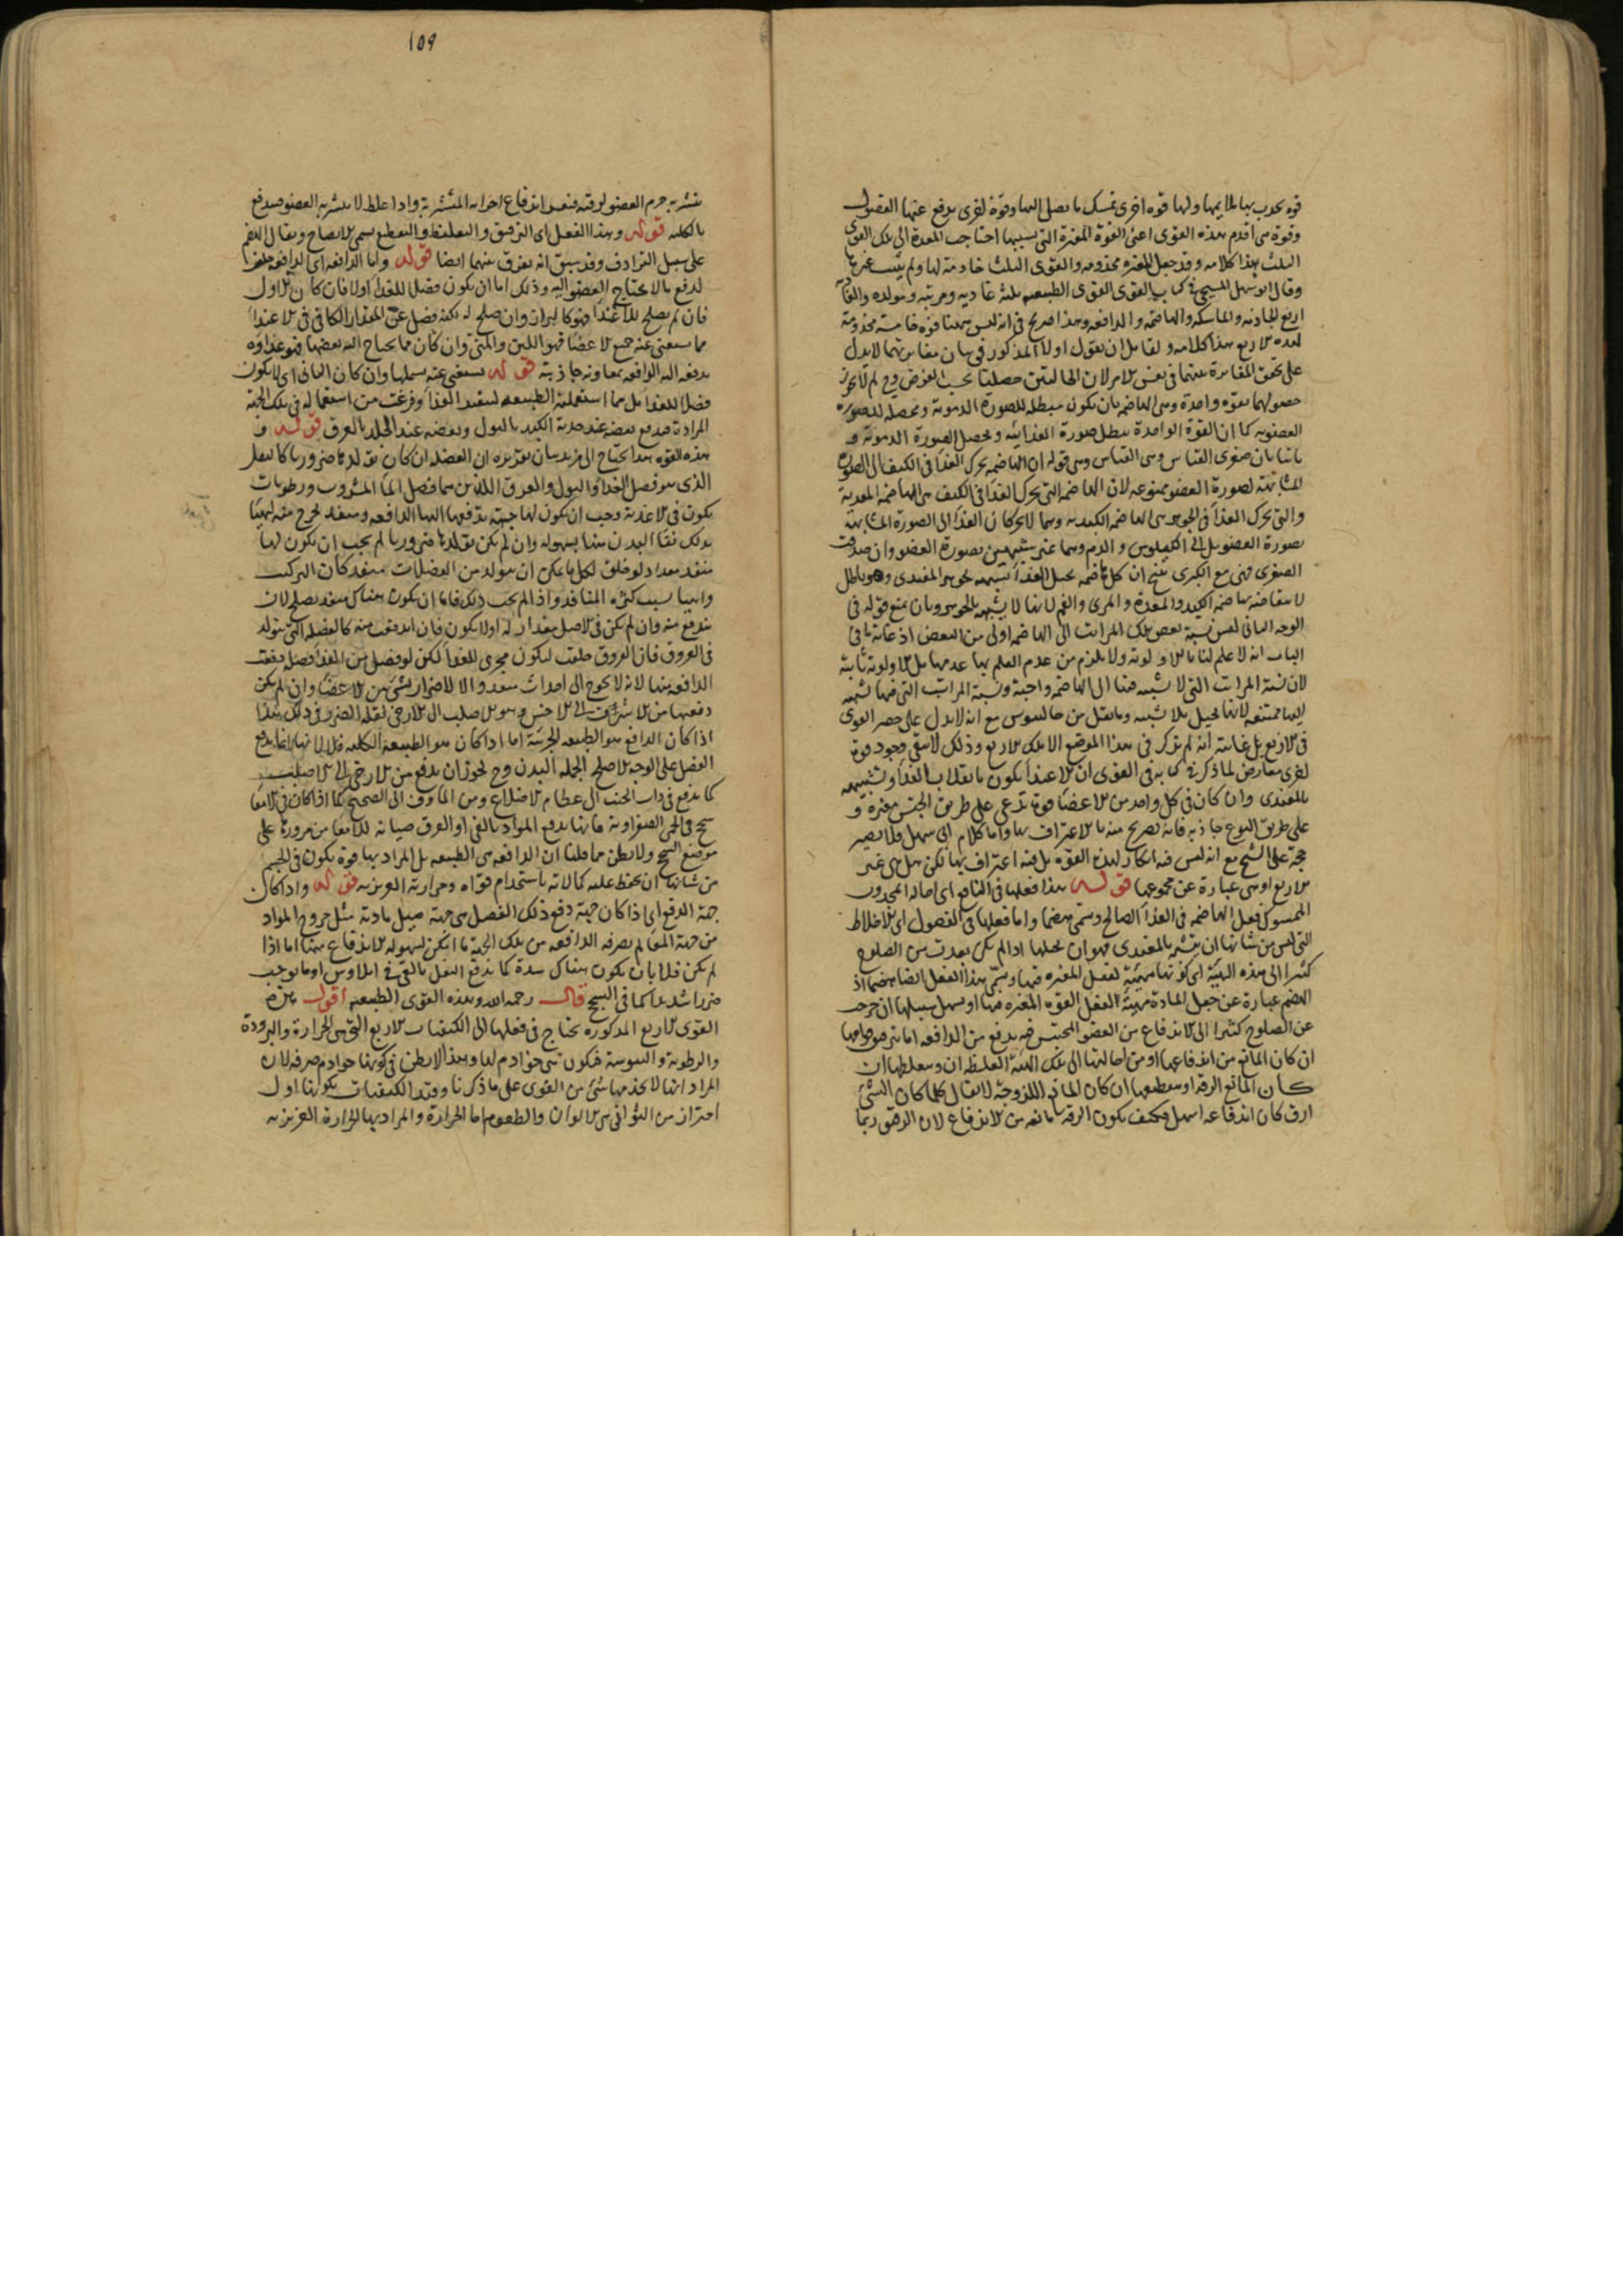 قوه تجذب بها ملايمها ولها قوه اخرى تمسك ما يصل اليها وقوة اخرى يدفع عنها الفضول
وقوة هى اقدم هذه القوى اعنى القوة المغيرة التى بسببها احتاجت المعدة الى تلك القوى
الثلث هذا كلامه وقد جعل المغيره مخدومه والقوى الثلث خادمة لها ولم يثبت غيرها
وقال ابو سهل المسيحى فى كتاب القوى القوى الطبيعيه ثلثه غاديه ومربيه ومولده والغاديه
اربع الجاذبه والماسكه والهاضمه والدافعه وهذا صريح فى انه ليس هيهنا قوة خامسة مخدومة
لهذه الاربع هذا كلامه ولقايل ان يقول اولا المذكور فى بيان مغايرتهما لا يدل
على تحقق المغايرة بينهما فى نفس الامر لان الحالتين حصلتا بحسب الغرض ولم لا يجوز
حصولهما بقوه واحدة وهى الهاضمه بان يكون مبطله للصورة الدمويه ومحصله للصوره
العضويه كما ان القوة الواحدة تبطل صورة الغذائيه وتحصل الصورة الدمويه و
ثانيا بان صغرى القياس وهى قوله ان الهاضمه تحرك الغذا فى الكيف الى الصورة
المشابهة لصورة العضو ممنوعه لان الهاضمه التى تحرك الغذا فى الكيف هى الهاضمه المعدية
والتى تحرك الغذا فى الجوهر هى الهاضمه الكبديه وهما لا يحركان الغذا الى الصورة المشابهة
لصورة العضو بل الى الكيلوس والدم وهما غير شبيهين بصورة العضو وان صدقت
الصغرى فهى مع الكبرى ينتج ان كل هاضمه تحيل الغذا شبيهه بجوهر المغتذى وهو باطل
لانتقاضه بهاضمه الكبد والمعدة والمرى والفم لانها لا يشبهه بالجوهر وبان يمنع قوله فى
الوجه الثانى ليس نسبة بعض تلك المراتب الى الهاضمه اولى من البعض اذ غاية ما فى
الباب انه لا علم لنا بالاولويه ولا يلزم من عدم العلم بها عدمها بل الاولويه ثابتة
لان نسبة المراتب التى لا تشبيه فيها الى الهاضمه واجبة ونسبة المراتب التى فيها تشبيه
اليها ممتنعه لانها تحيل بلا شبيه وما نقل من جالينوس مع انه لا يدل على حصر القوى
فى الاربع بل غايته انه لم يذكر فى هذا الموضع الا تلك الاربع وذلك لا ينفى وجود قوة
اخرى معارض لما ذكر فى كتابه فى القوى ان الاغتذا يكون بانقلاب الغذا وتشبيهه
بالمغتذى وان كان فى كل واحد من الاعضا قوة تدعى على طريق الجنس مغيرة و
على طريق النوع جاذبه فانه تصريح منه بالاعتراف بها واما كلام ابى سهل فلا يصير
حجة على الشيخ مع انه ليس فيه انكار لهذه القوه بل فيه اعتراف بها لكن هل هى غير
الاربع او هى عبارة عن مجموعها قوله هذا فعلها فى النافع اى احالة المجذوب
الممسوك فعل الهاضمه فى الغذا الصالح وتسمى هضما واما فعلها فى الفضول اى الاخلاط
التى ليس من شانها ان يتشبه بالمغتذى فهو ان تحيلها اذا لم يكن بعدت من الصلوح
كثيرا الى هذه الهيئة اى كونها مهيئة لفعل المغيره فيها ويسمى هذا الفعل ايضا هضما اذ
الهضم عبارة عن جعل المادة مهيئة لفعل القوه المغيره فيها او يسهل سبيلها ان خرجت
عن الصلوح كثيرا الى الاندفاع من العضو المحتبس فيه بدفع من الدافعه اما بترقيق قوامها
ان كان المانع من اندفاعها او من احالتها الى تلك الهيئة الغلظ او تغليظها ان
كان المانع الرقه او تقطيعها ان كان المانع اللزوجة لا يقال كلما كان الشئ
ارق كان اندفاعه اسهل فكيف يكون الرقه مانعه من الاندفاع لان الرقيق ربما
١٥٩
يتشربه جرم العضو لرقته فيعسر اندفاع اجزايه المتشربة واذا غلظ لا يتشربه العضو فيندفع
بالكليه قوله وهذا الفعل اى الترقيق والتغليظ والتقطيع يسمى الانضاج ويقال الهضم
على سبيل الترادف وقد سبق انه يفرق بينهما ايضا قوله واما الدافعه اى الدافعه خلقها
لدفع ما لا يحتاج العضو اليه وذلك اما ان يكون فضلا للغذا اولا فان كان الاول
فان لم يصلح للاغتذا فهو كالبراز وان صلح له لكنه فضل عن المقدار الكافى فى الاغتذا
مما يستغنى عنه جميع الاعضا فهو اللبن والمنى وان كان مما يحتاج اليه بعضها فهو غذاوه
يدفعه اليه الدافعه بمعاونه جاذبته قوله يستغنى عنه بمثلها وان كان الثانى اى لا يكون
فضلا للغذا بل مما استعملته الطبيعه لتنفيذ الغذا وفرغت من استعماله فى تلك الجهه
المرادة فيدفع بعضه عند حدبة الكبد بالبول وبعضه عند الجلد بالعرق قوله و
هذه القوه هذا يحتاج الى مزيد بيان تقريره ان الفضله ان كان تولدها ضروريا كالثفل
الذى هو فضل الغذا والبول والعرق اللذين هما فضل الما المشروب ورطوبات
يكون فى الاغذية وجب ان يكون لها جهة تدفعها اليها الدافعه ومنفذ يخرج منه ليتهيا
بذلك نقا البدن منها بسهوله وان لم يكن تولدها ضروريا لم يجب ان يكون لها
منفذ معد اذ لو خلق لكل ما يمكن ان يتولد من الفضلات منفذ كان التركيب
واهيا بسبب كثره المنافذ واذا لم يجب ذلك فاما ان يكون هناك منفذ يصلح لان
يندفع منه وان لم يكن فى الاصل معدا له اولا يكون فان اندفعت منه كالفضله التى تتولد
فى العروق فان العروق خلقت ليكون مجرى للغذا لكن لو فضل من الغذا فضله دفعت
الدافعه منها لانه لا يحوج الى احداث منفذ والا لاضرار بشئ من الاعضا وان لم يكن
دفعها من الاشرف الى الاخس ومن الاصلب الى الارخى لقله الضرر فى ذلك هذا
اذا كان الدافع هو الطبيعه الجزئية اما اذا كان هو الطبيعة الكليه فلا لانها انما تدفع
الفضل على الوجه الاصلح لجمله البدن وح يجوز ان يدفع من الارخى الى الاصلب
كما يدفع فى ذات الجنب الى عظام الاضلاع ومن الماوف الى الصحيح كما اذا كان فى الامعا
سحج فى الحمى الصفراويه فانها تدفع المواد بالقى او العرق صيانه للامعا من مرورها على
موضع السحج ولا يظن مما قلنا ان الدافعه هى الطبيعه بل المراد بها قوة يكون فى الجسم
من شانها ان يحفظ عليه كمالاته باستخدام قواه وحرارته الغريزيه قوله واذا كان
جهة الدفع اى اذا كان جهة دفع ذلك الفضل هى جهة ميل مادته مثل خروج المواد
من جهة المعا لم يصرفه الدافعه من تلك الجهة ما امكن لسهوله الاندفاع منها اما اذا
لم يكن فلا بان يكون هناك سدة كما يدفع الثفل بالقى فى ايلاوس او ما يوجب
ضررا شديدا كما فى السحج قال رحمه الله وهذه القوى الطبيعيه اقول
القوى الاربع المذكوره تحتاج فى فعلها الى الكيفيات الاربع التى هى الحرارة والبرودة
والرطوبة واليبوسة فيكون هى خوادم لها وهذا لا يظن فى كونها خوادم صرفه لان
المراد انها لا يخدمها شئ من القوى على ما ذكرنا وقيد الكيفيات بكونها اول
احتراز من الثوانى هى الالوان والطعوم اما الحرارة والمراد بها الحرارة الغريزيه